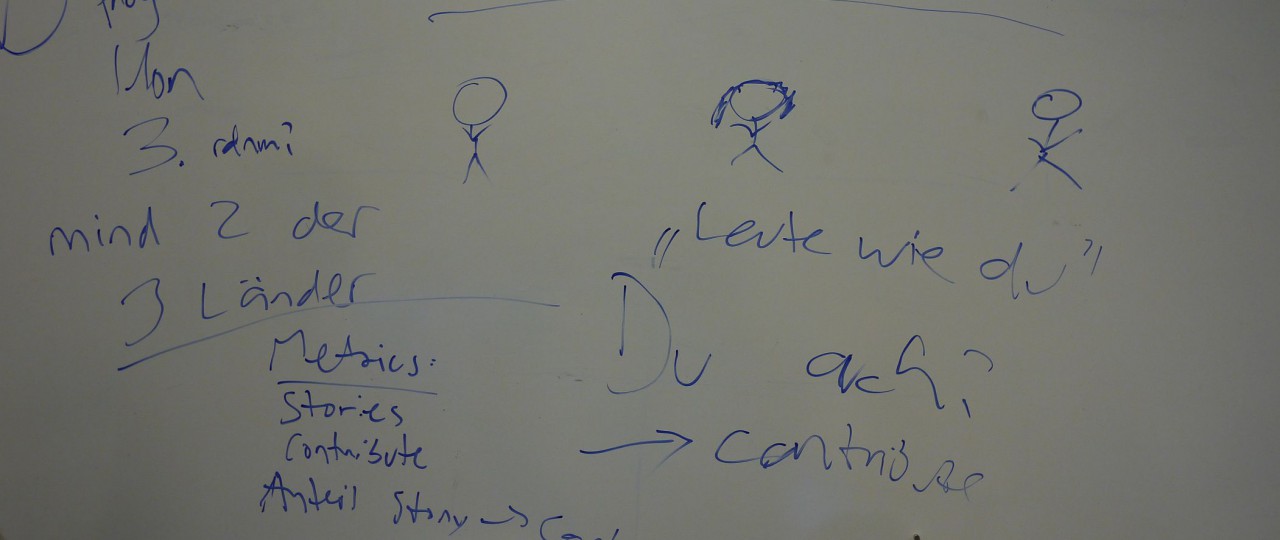 3.
mind 2 der
3 Länder
Metrics:
Stories
Contribute
Anteil Story →
„Leute wie du”
Du ach?
→ contribute